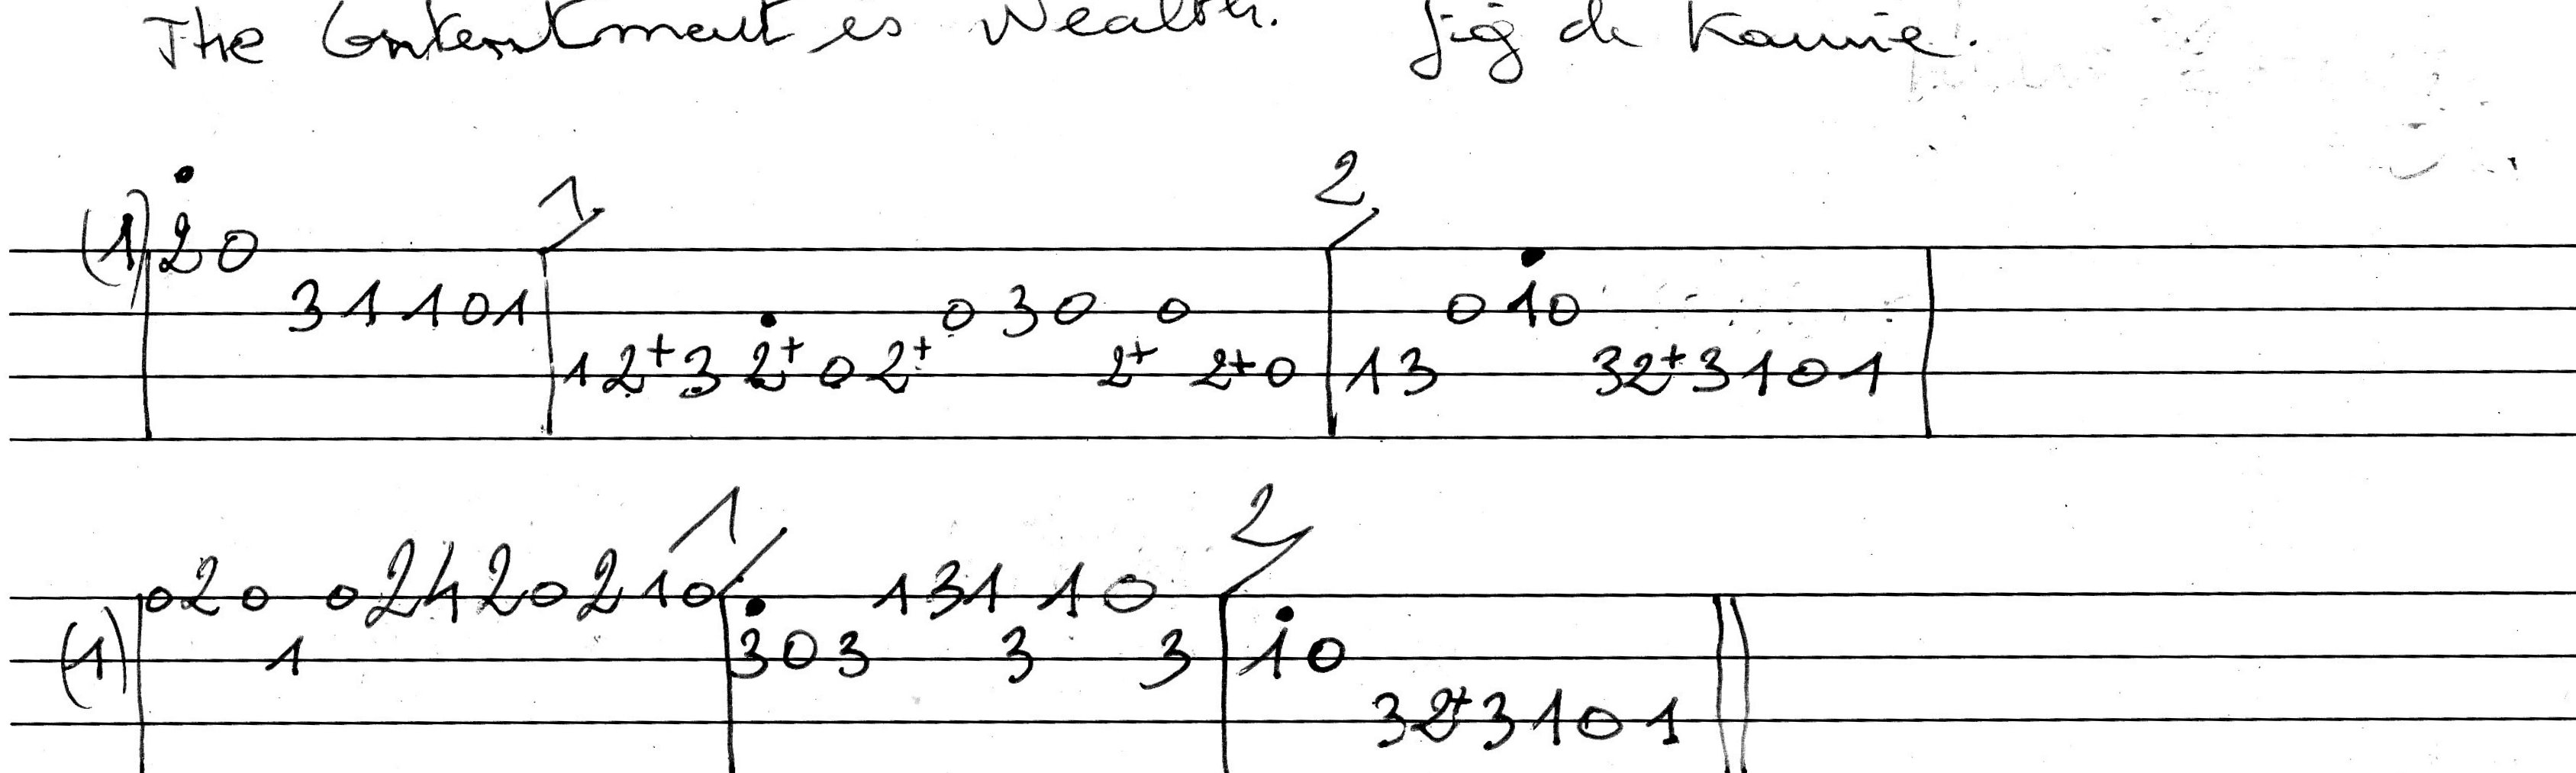 The Contentment is Wealth. Jig de Kannie.
1 2
(1) 2 0 3 1 1 1 0 1 1 2+ 3 2+ 0 2+ 0 3 0 2+ 0 2+ 0 1 3 0 1 0 3 2+ 3 1 0 1
1 2
(1) 0 2 0 1 0 2 4 2 0 2 1 0 3 0 3 1 3 1 3 1 0 3 1 0 3 2+ 3 1 0 1